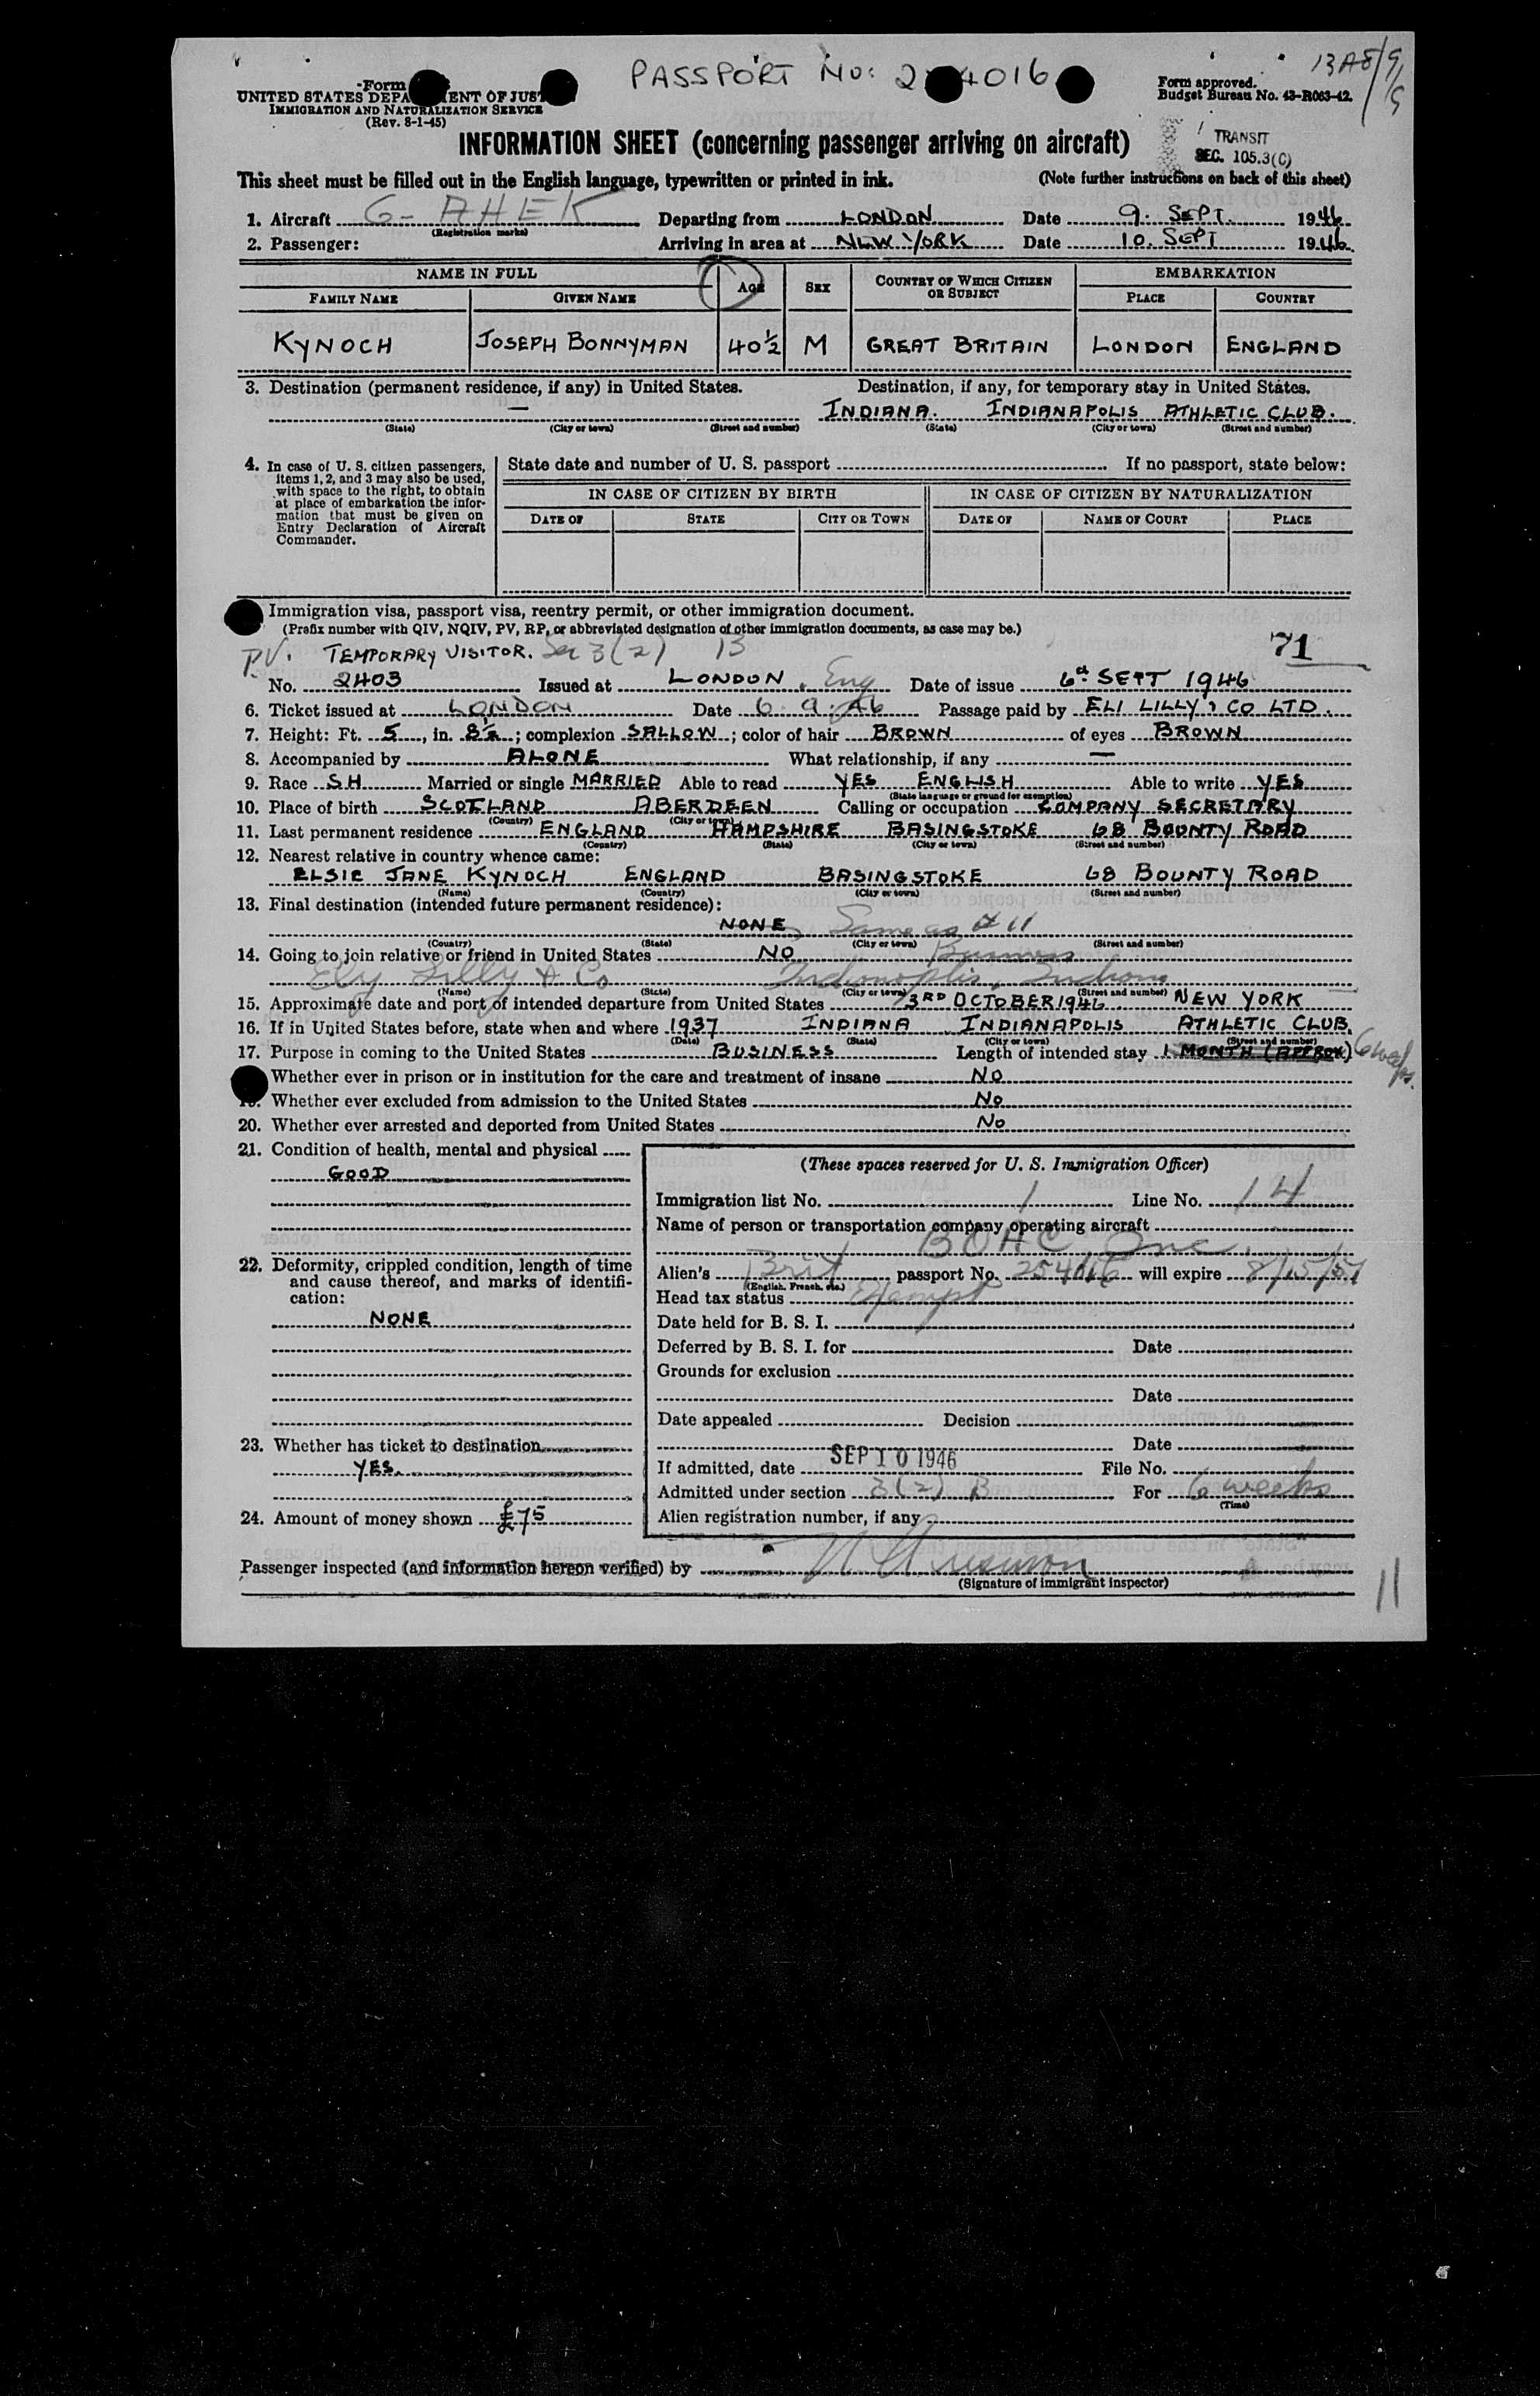 PASSPORT No: 2 4016
13A8/9/9
Form
UNITED STATES DEPA ENT OF JUS
IMMIGRATION AND NATURALIZATION SERVICE
(Rev. 8-1-45)
Form approved.
Budget Bureau No. 43-R063-42.
INFORMATION SHEET (concerning passenger arriving on aircraft)
TRANSIT
SEC. 105.3(C)
This sheet must be filled out in the English language, typewritten or printed in ink. (Note further instructions on back of this sheet)
1. Aircraft G-AHEK Departing from LONDON Date 9. SEPT. 1946
(Registration marks)
2. Passenger: Arriving in area at NEW YORK Date 10. SEPT 1946.
NAME IN FULL AGE SEX COUNTRY OF WHICH CITIZEN OR SUBJECT EMBARKATION
FAMILY NAME GIVEN NAME PLACE COUNTRY
KYNOCH JOSEPH BONNYMAN 40½ M GREAT BRITAIN LONDON ENGLAND
3. Destination (permanent residence, if any) in United States. Destination, if any, for temporary stay in United States.
— INDIANA. INDIANAPOLIS ATHLETIC CLUB.
(State) (City or town) (Street and number) (State) (City or town) (Street and number)
4. In case of U. S. citizen passengers,
items 1, 2, and 3 may also be used,
with space to the right, to obtain
at place of embarkation the infor-
mation that must be given on
Entry Declaration of Aircraft
Commander.
State date and number of U. S. passport If no passport, state below:
IN CASE OF CITIZEN BY BIRTH IN CASE OF CITIZEN BY NATURALIZATION
DATE OF STATE CITY OR TOWN DATE OF NAME OF COURT PLACE
Immigration visa, passport visa, reentry permit, or other immigration document.
(Prefix number with QIV, NQIV, PV, RP, or abbreviated designation of other immigration documents, as case may be.)
P.V. TEMPORARY VISITOR. Sec 3(2) B 71
No. 2403 Issued at LONDON, Eng Date of issue 6th SEPT 1946
6. Ticket issued at LONDON Date 6.9.46 Passage paid by ELI LILLY & CO LTD.
7. Height: Ft. 5, in. 8½; complexion SALLOW; color of hair BROWN of eyes BROWN
8. Accompanied by ALONE What relationship, if any —
9. Race SH Married or single MARRIED Able to read YES ENGLISH Able to write YES
(State language or ground for exemption)
10. Place of birth SCOTLAND ABERDEEN Calling or occupation COMPANY SECRETARY
(Country) (City or town)
11. Last permanent residence ENGLAND HAMPSHIRE BASINGSTOKE 68 BOUNTY ROAD
(Country) (State) (City or town) (Street and number)
12. Nearest relative in country whence came:
ELSIE JANE KYNOCH ENGLAND BASINGSTOKE 68 BOUNTY ROAD
(Name) (Country) (City or town) (Street and number)
13. Final destination (intended future permanent residence):
NONE, Same as # 11
(Country) (State) (City or town) (Street and number)
14. Going to join relative or friend in United States NO Business
Ely Lilly & Co Indianoplis, Indiana
(Name) (State) (City or town) (Street and number)
15. Approximate date and port of intended departure from United States 3RD OCTOBER 1946 NEW YORK
16. If in United States before, state when and where 1937 INDIANA INDIANAPOLIS ATHLETIC CLUB.
(Date) (State) (City or town) (Street and number)
17. Purpose in coming to the United States BUSINESS Length of intended stay 1 MONTH (APPROX) 6 weeks.
Whether ever in prison or in institution for the care and treatment of insane No
19. Whether ever excluded from admission to the United States No
20. Whether ever arrested and deported from United States No
21. Condition of health, mental and physical
GOOD
22. Deformity, crippled condition, length of time
and cause thereof, and marks of identifi-
cation:
NONE
23. Whether has ticket to destination
YES.
24. Amount of money shown £75
(These spaces reserved for U. S. Immigration Officer)
Immigration list No. 1 Line No. 14
Name of person or transportation company operating aircraft
BOAC Inc.
Alien's Brit passport No. 254016 will expire 8/15/51
(English, French, etc.)
Head tax status Exempt
Date held for B. S. I.
Deferred by B. S. I. for Date
Grounds for exclusion
Date
Date appealed Decision
Date
If admitted, date SEP 10 1946 File No.
Admitted under section 3(2) B For 6 weeks
(Time)
Alien registration number, if any
Passenger inspected (and information hereon verified) by
(Signature of immigrant inspector)
11